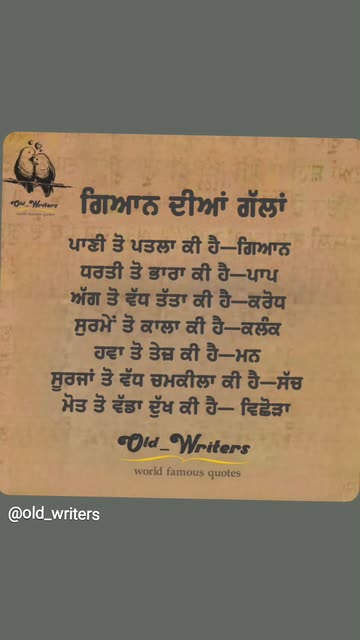 Old_Writers
world famous quotes
ਗਿਆਨ ਦੀਆਂ ਗੱਲਾਂ
ਪਾਣੀ ਤੋ ਪਤਲਾ ਕੀ ਹੈ—ਗਿਆਨ
ਧਰਤੀ ਤੋ ਭਾਰਾ ਕੀ ਹੈ—ਪਾਪ
ਅੱਗ ਤੋ ਵੱਧ ਤੱਤਾ ਕੀ ਹੈ—ਕਰੋਧ
ਸੁਰਮੇਂ ਤੋ ਕਾਲਾ ਕੀ ਹੈ—ਕਲੰਕ
ਹਵਾ ਤੋ ਤੇਜ਼ ਕੀ ਹੈ—ਮਨ
ਸੂਰਜਾਂ ਤੋ ਵੱਧ ਚਮਕੀਲਾ ਕੀ ਹੈ—ਸੱਚ
ਮੋਤ ਤੋ ਵੱਡਾ ਦੁੱਖ ਕੀ ਹੈ— ਵਿਛੋੜਾ
Old_Writers
world famous quotes
@old_writers